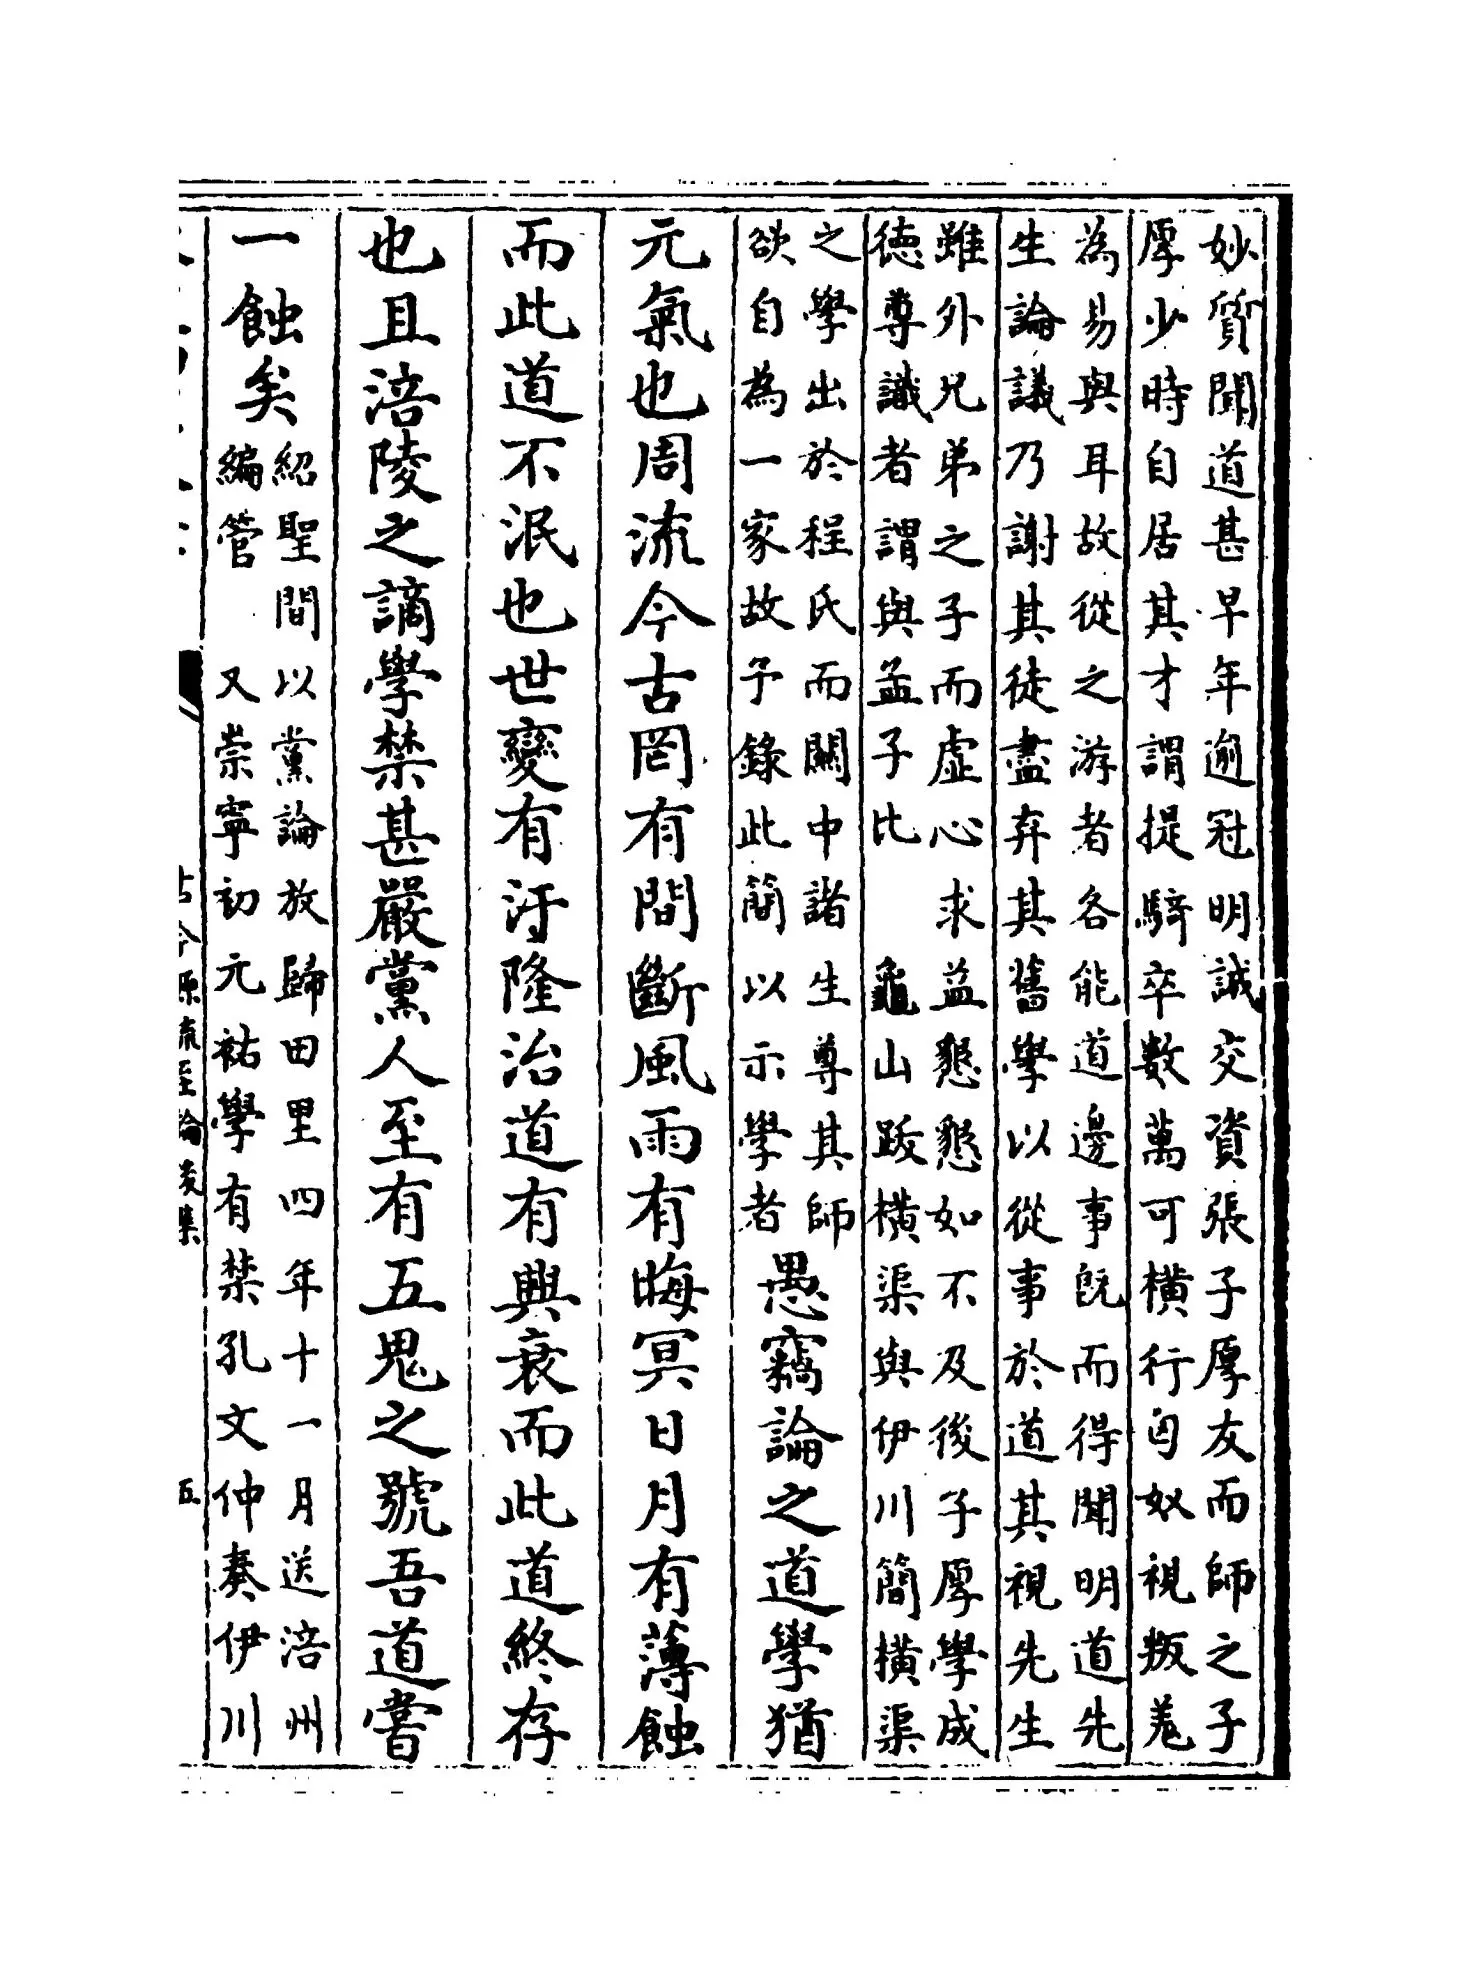 妙質聞道甚早年逾冠明誠交資張子厚友而師之子
厚少時自居其才謂提騎卒數萬可橫行匈奴視叛羌
為易與耳故從之游者各能道邊事既而得聞明道先
生論議乃謝其徒盡弃其舊學以從事於道其視先生
雖外兄弟之子而虛心求益懇懇如不及後子厚學成
德尊識者謂與孟子比 龜山跋橫渠與伊川簡橫渠
之學出於程氏而關中諸生尊其師
欲自為一家故予錄此簡以示學者
愚竊論之道學猶
元氣也周流今古罔有間斷風雨有晦冥日月有薄蝕
而此道不泯也世變有汙隆治道有興衰而此道終存
也且涪陵之謫學禁甚嚴黨人至有五鬼之號吾道嘗
一蝕矣
紹聖間以黨論放歸田里四年十一月送涪州
編管 又崇寧初元祐學有禁孔文仲奏伊川
古今源流至論後集
五